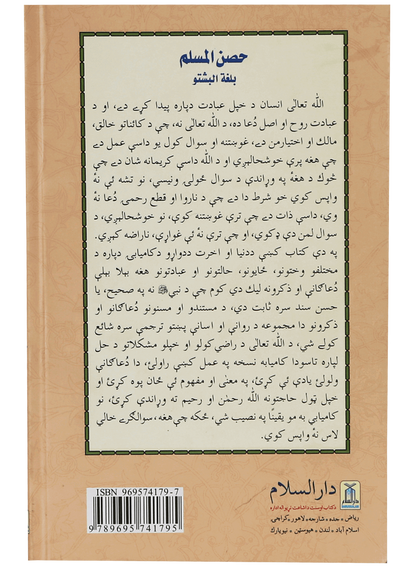 حصن المسلم
بلغة البشتو
الله تعالٰی انسان د خپل عبادت دپاره پیدا کړے دے، او د
عبادت روح او اصل دُعا ده، د الله تعالٰی نه، چې د کائناتو خالق،
مالك او اختیارمن دے، غوښتنه او سوال کول یو داسې عمل دے
چې هغه پرې خوشحالېږي او د الله داسې کریمانه شان دے چې
څوك د هغۀ په وړاندې د سوال ځولۍ ونیسي، نو تشه ئې نۀ
واپس کوي خو شرط دا دے چې د ناروا او قطع رحمۍ دُعا نۀ
وي، داسې ذات دے چې ترې غوښتنه کوې، نو خوشحالېږي، د
سوال لمن دې ډکوي، او چې ترې نۀ ئې غواړې، ناراضه کېږي.
په دې کتاب کښې ددنیا او اخرت ددوارو دکامیابۍ دپاره د
مختلفو وختونو، ځایونو، حالتونو او عبادتونو هغه بېلا بېلې
دُعاګانې او ذکرونه لیك دي کوم چې د نبيﷺ نه په صحیح، یا
حسن سند سره ثابت دي، د مستندو او مسنونو دُعاګانو او
ذکرونو دا مجموعه د روانې او اسانې پښتو ترجمې سره شائع
کولے شي، د الله تعالٰی د راضي کولو او خپلو مشکلاتو د حل
لپاره تاسو دا کامیابه نسخه په عمل کښې راولئ، دا دُعاګانې
ولولئ یادې ئې کړئ، په معنٰی او مفهوم ئې ځان پوه کړئ او
خپل ټول حاجتونه الله رحمٰن او رحیم ته وړاندې کړئ، نو
کامیابي به مو یقینًا په نصیب شي، ځکه چې هغه، سوالګرے خالي
لاس نۀ واپس کوي.
ISBN 969574179-7
9 789695 741795
دار السلام
دارالسلام
دکتاب اوسنت د اشاعت نړیواله اداره
ریاض • جده • شارجه • لاهور • کراچی
اسلام آباد • لندن • هیوسټن • نیویارك